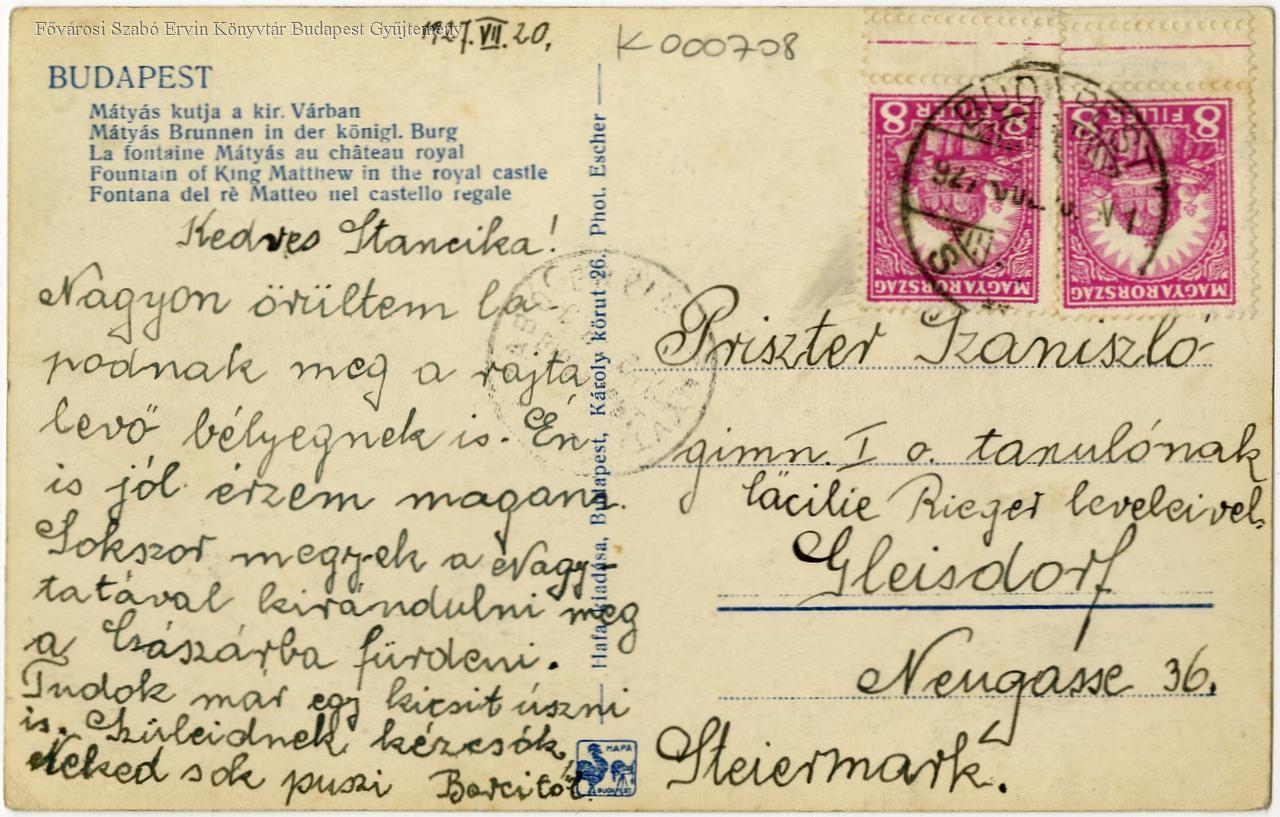 Fővárosi Szabó Ervin Könyvtár Budapest Gyűjtemény
1927.VII.20.
K 000708
BUDAPEST
Mátyás kutja a kir. Várban
Mátyás Brunnen in der königl. Burg
La fontaine Mátyás au château royal
Fountain of King Matthew in the royal castle
Fontana del rè Matteo nel castello regale
Kedves Stancika!
Nagyon örültem la-
podnak meg a rajta
levő bélyegnek is. Én
is jól érzem magam.
Sokszor megyek a Nagy-
tatával kirándulni meg
a Császárba fürdeni.
Tudok már egy kicsit úszni
is. Szüleidnek kézcsók,
Neked sok puszi Borcitól.
Hafa kiadása, Budapest, Károly körut 26. Phot. Escher
HAFA
BUDAPEST
8 FILLÉR 8
MAGYARORSZÁG
8 FILLÉR 8
MAGYARORSZÁG
BUDAPEST
Priszter Szaniszló
gimn. I o. tanulónak
Cäcilie Rieger leveleivel
Gleisdorf
Neugasse 36.
Steiermark.